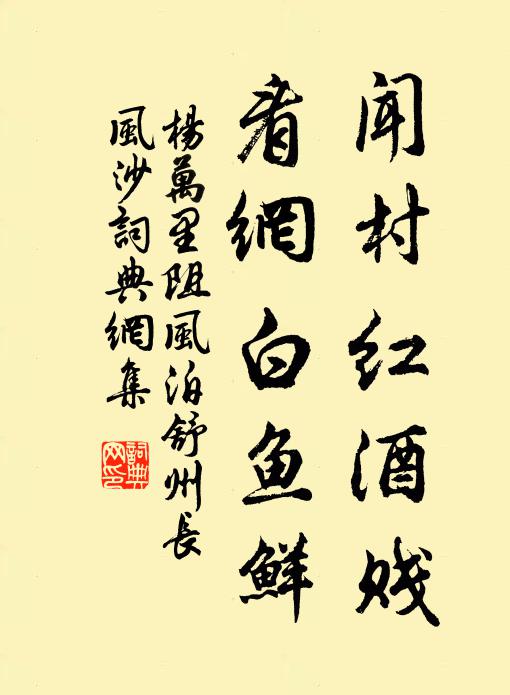 闻村红酒贱
看網白鱼鮮
楊萬里阻風泊舒州長
風沙詞典網集
詞典网印